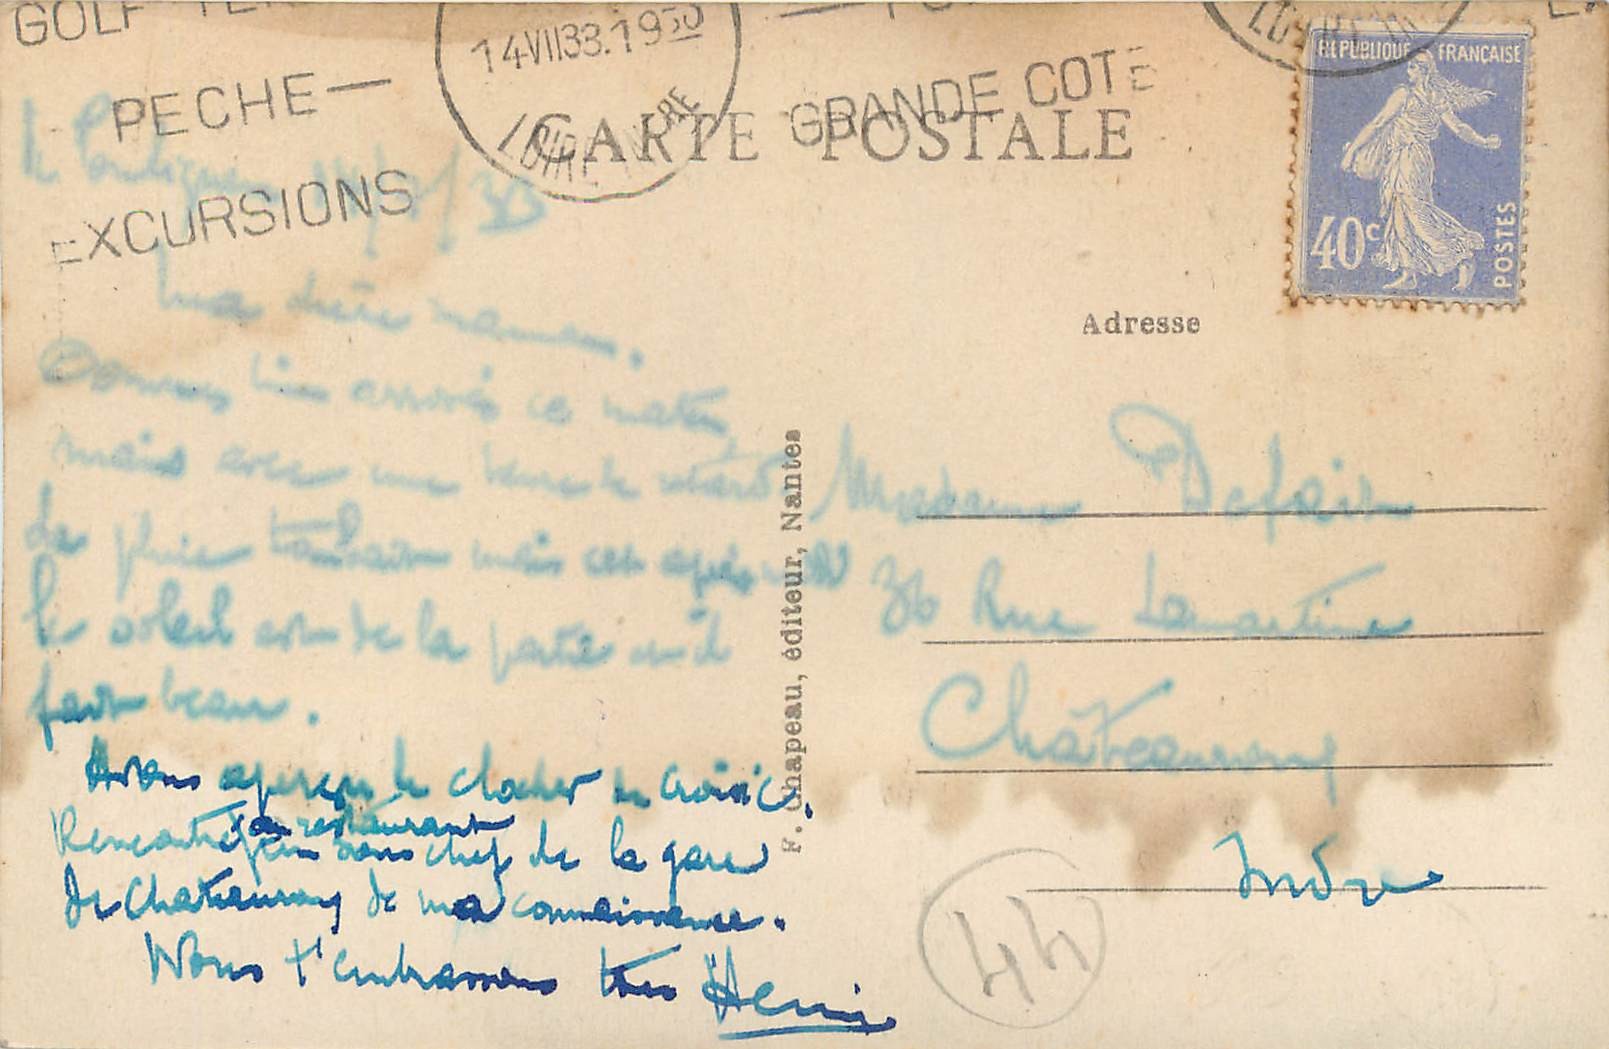 GOLF
PECHE —
EXCURSIONS
14 VII 33. 19 30
LOIRE INFRE
GRANDE COTE
CARTE POSTALE
REPUBLIQUE FRANÇAISE
40c
POSTES
Le Pouliguen 14/7/33
Ma chère maman.
Sommes bien arrivés ce matin
mais avec une heure de retard
La pluie tombait mais cet après midi
le soleil est de la partie et il
fait beau.
Avons aperçu le clocher du Croisic.
Rencontré au restaurant
un sous chef de la gare
de Chateauroux de ma connaissance.
Nous t'embrassons tous Henri
F. Chapeau, éditeur, Nantes
Adresse
Madame Defaix
36 Rue Lamartine
Châteauroux
Indre
44